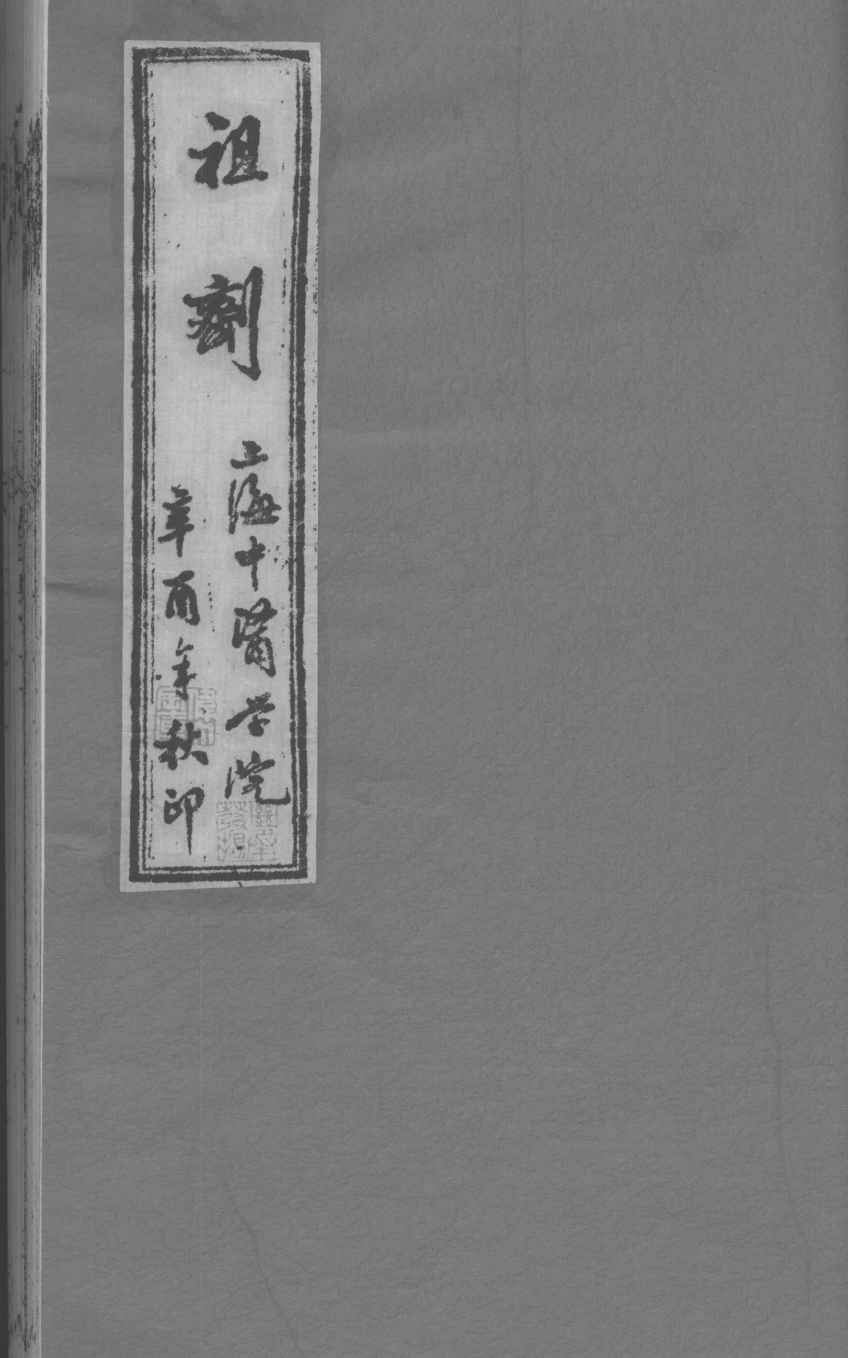 祖劑
上海中醫学院
辛酉年秋印